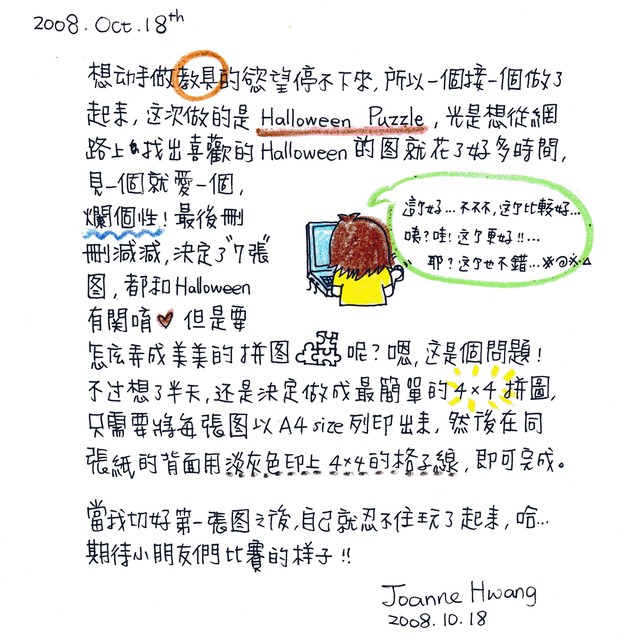 2008. Oct. 18th
想动手做教具的慾望停不下來,所以一個接一個做了
起來,这次做的是 Halloween Puzzle,光是想從網
路上找出喜歡的Halloween的图就花了好多時間,
見一個就愛一個,
爛個性!最後刪
刪減減,決定了"7張"
图,都和Halloween
有關唷♥但是要
怎広弄成美美的拼图 呢?嗯,这是個問題!
不过想了半天,还是決定做成最簡單的4×4拼圖,
只需要將每張图以A4 size列印出來,然後在同
張紙的背面用淡灰色印上4×4的格子線,即可完成。
這个好...不不不,这个比較好...
咦?哇!这个更好!!...
耶?这个也不錯...※@※·△
當我切好第一張图之後,自己就忍不住玩了起來,哈...
期待小朋友們比賽的样子!!
Joanne Hwang
2008.10.18